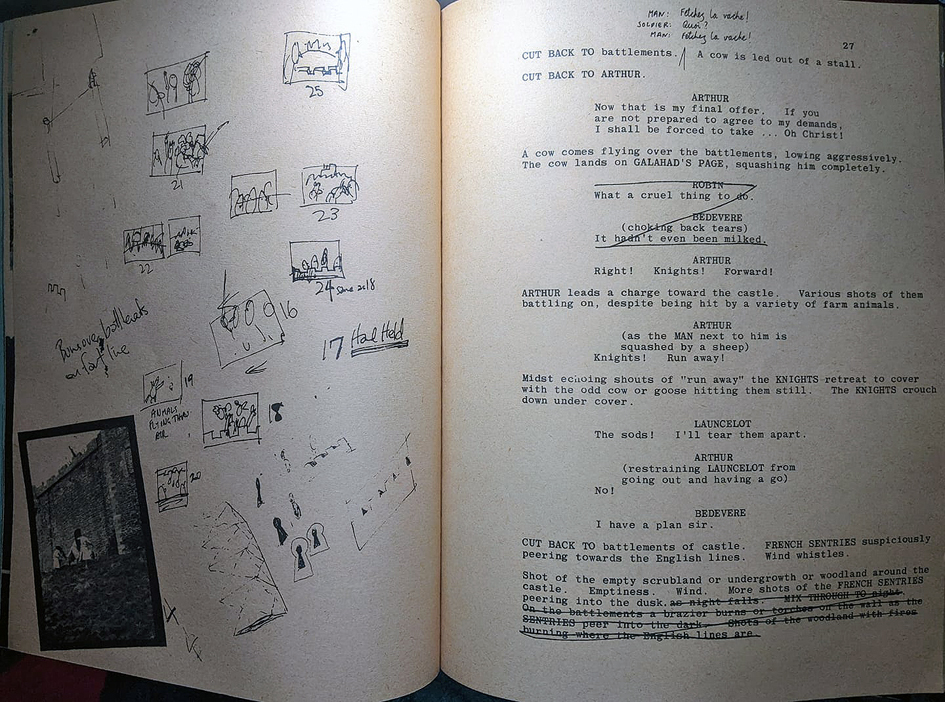 25
21
23
22
24 June 2018
16
17 Hand Held
19
ANIMALS
FLYING THRU
AIR
20
MAN: Fetchez la vache!
SOLDIER: Quoi?
MAN: Fetchez la vache!
27
CUT BACK TO battlements. A cow is led out of a stall.
CUT BACK TO ARTHUR.
ARTHUR
Now that is my final offer. If you
are not prepared to agree to my demands,
I shall be forced to take ... Oh Christ!
A cow comes flying over the battlements, lowing aggressively.
The cow lands on GALAHAD'S PAGE, squashing him completely.
ROBIN
What a cruel thing to do.
BEDEVERE
(choking back tears)
It hadn't even been milked.
ARTHUR
Right! Knights! Forward!
ARTHUR leads a charge toward the castle. Various shots of them
battling on, despite being hit by a variety of farm animals.
ARTHUR
(as the MAN next to him is
squashed by a sheep)
Knights! Run away!
Midst echoing shouts of "run away" the KNIGHTS retreat to cover
with the odd cow or goose hitting them still. The KNIGHTS crouch
down under cover.
LAUNCELOT
The sods! I'll tear them apart.
ARTHUR
(restraining LAUNCELOT from
going out and having a go)
No!
BEDEVERE
I have a plan sir.
CUT BACK TO battlements of castle. FRENCH SENTRIES suspiciously
peering towards the English lines. Wind whistles.
Shot of the empty scrubland or undergrowth or woodland around the
castle. Emptiness. Wind. More shots of the FRENCH SENTRIES
peering into the dusk.as night falls. MIX THROUGH TO night.
On the battlements a brazier burns or torches on the wall as the
SENTRIES peer into the dark. Shots of the woodland with fires
burning where the English lines are.